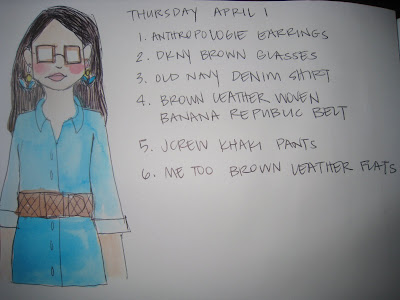 THURSDAY APRIL 1
1. ANTHROPOLOGIE EARRINGS
2. DKNY BROWN GLASSES
3. OLD NAVY DENIM SHIRT
4. BROWN LEATHER WOVEN
BANANA REPUBLIC BELT
5. JCREW KHAKI PANTS
6. ME TOO BROWN LEATHER FLATS